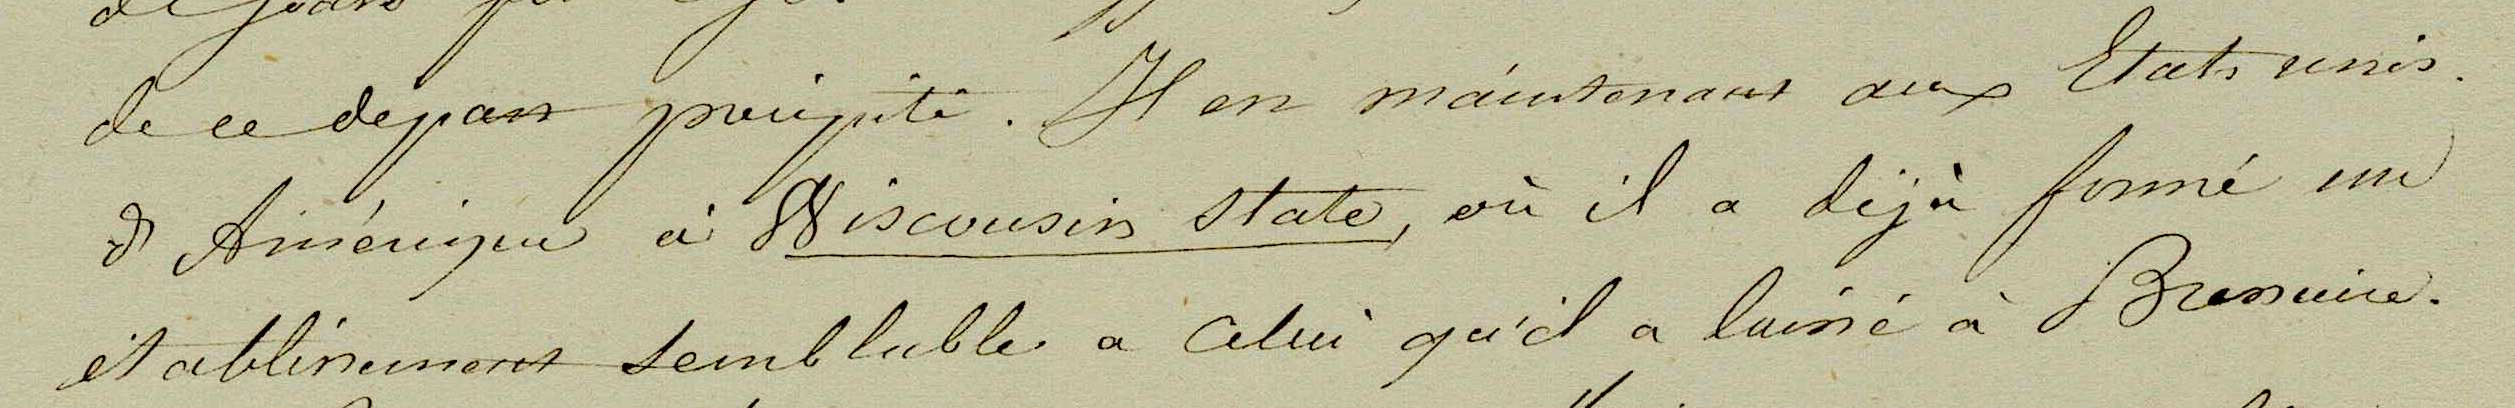 de ce depart précipité. Il est maintenant aux Etats unis.
d'Amérique à Wiscousin State, où il a déjà formé un
établissement semblable a celui qu'il a laissé à Bressuire.